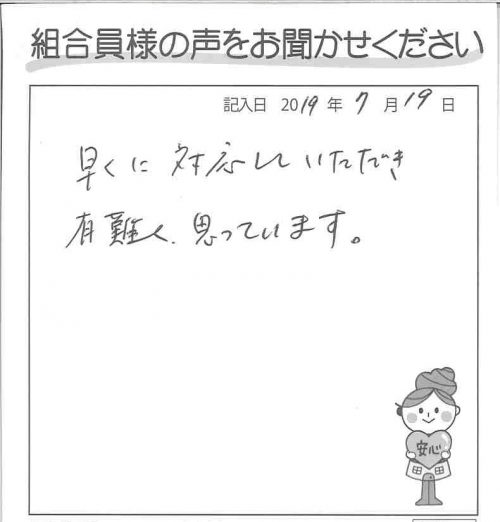 組合員様の声をお聞かせください
記入日 2019年7月19日
早くに対応していただき
有難く、思っています。
安心